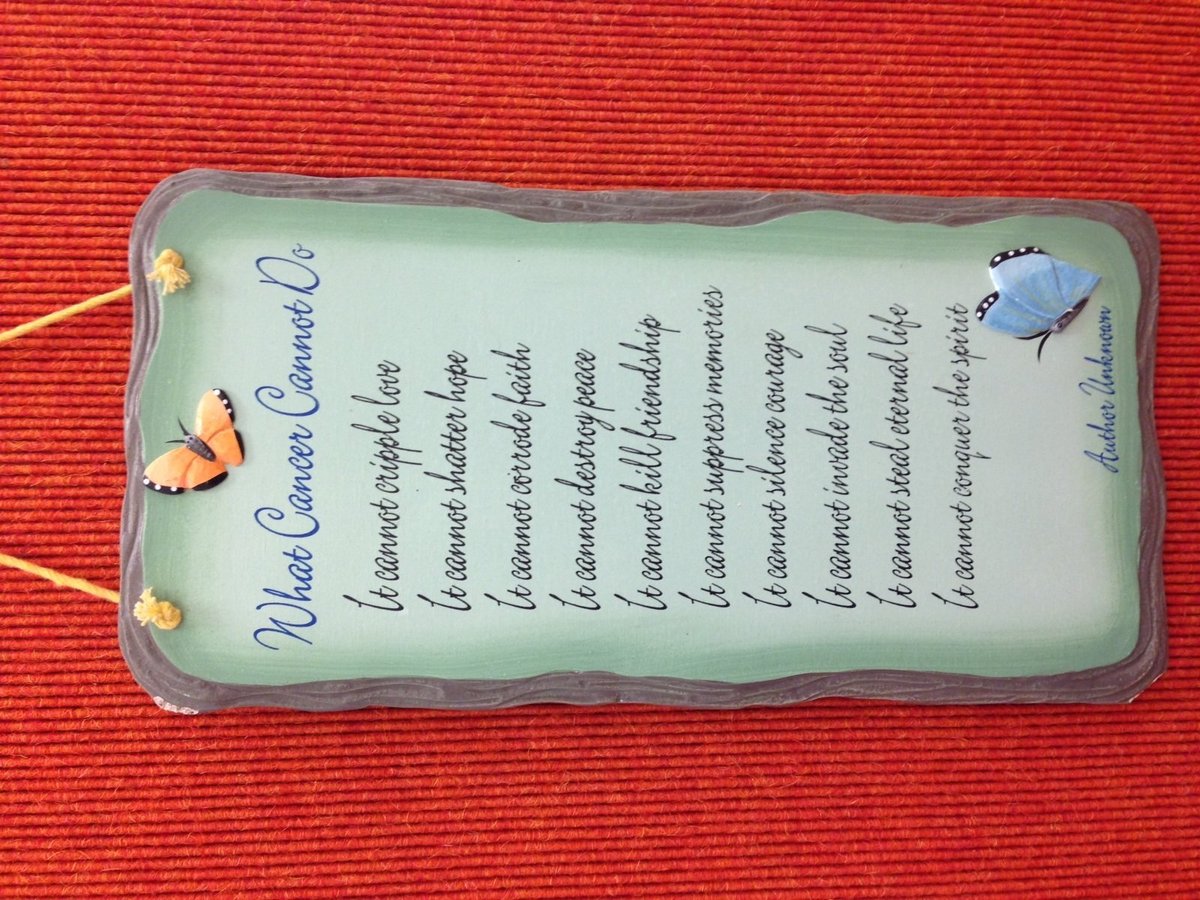 What Cancer Cannot Do
It cannot cripple love
It cannot shatter hope
It cannot corrode faith
It cannot destroy peace
It cannot kill friendship
It cannot suppress memories
It cannot silence courage
It cannot invade the soul
It cannot steal eternal life
It cannot conquer the spirit
Author Unknown